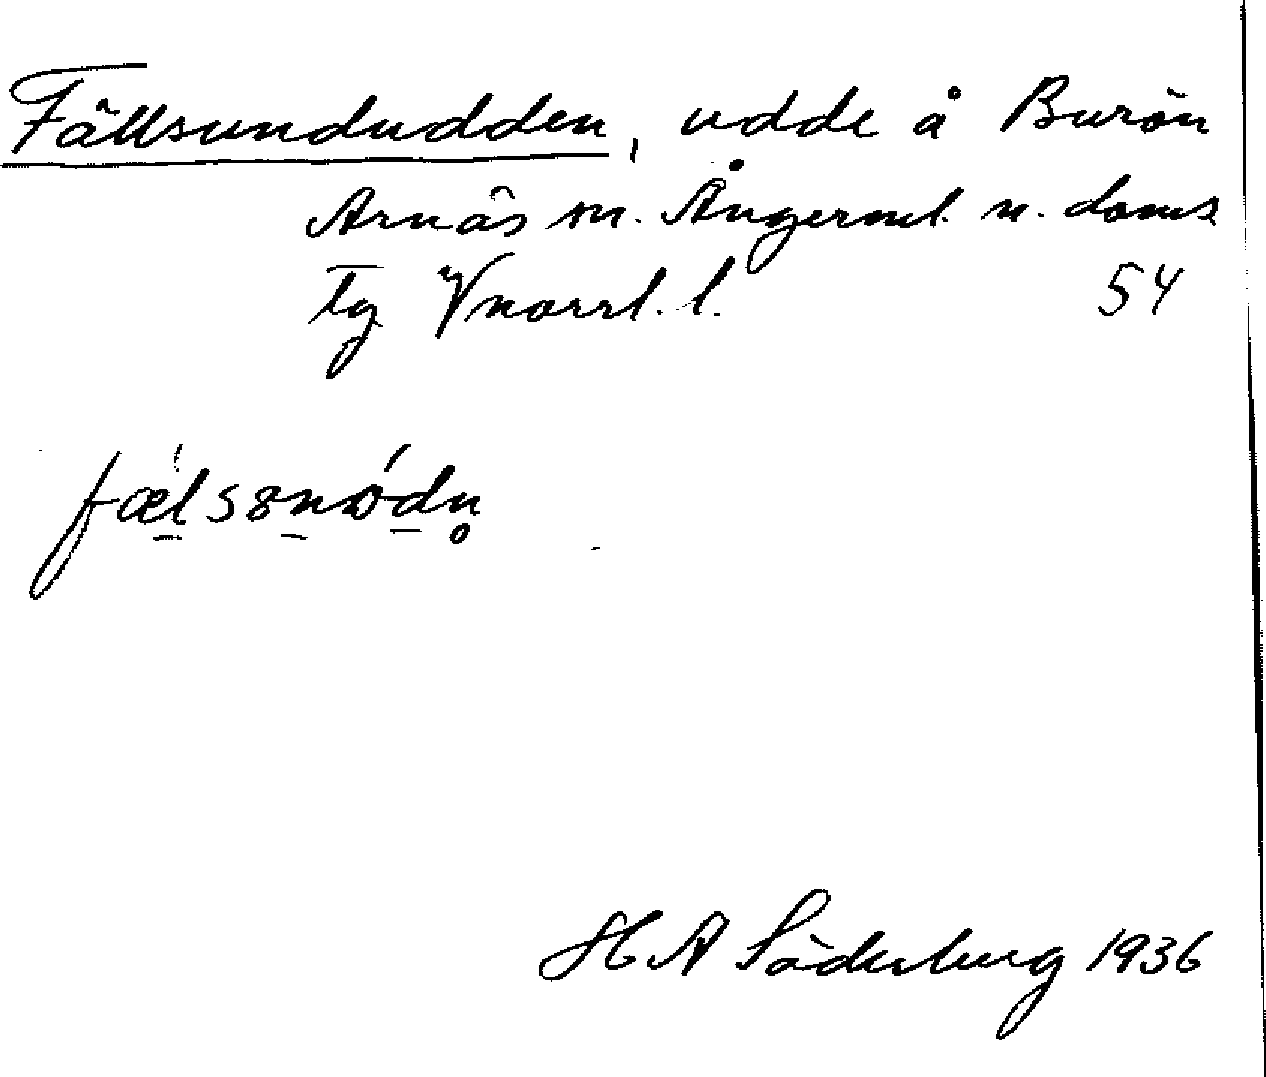 Fällsundudden, udde å Burön
Arnäs sn. Ångerml. n. doms
tg Vnorrl. l. 54
fæls8nódn̥
H A Söderberg 1936